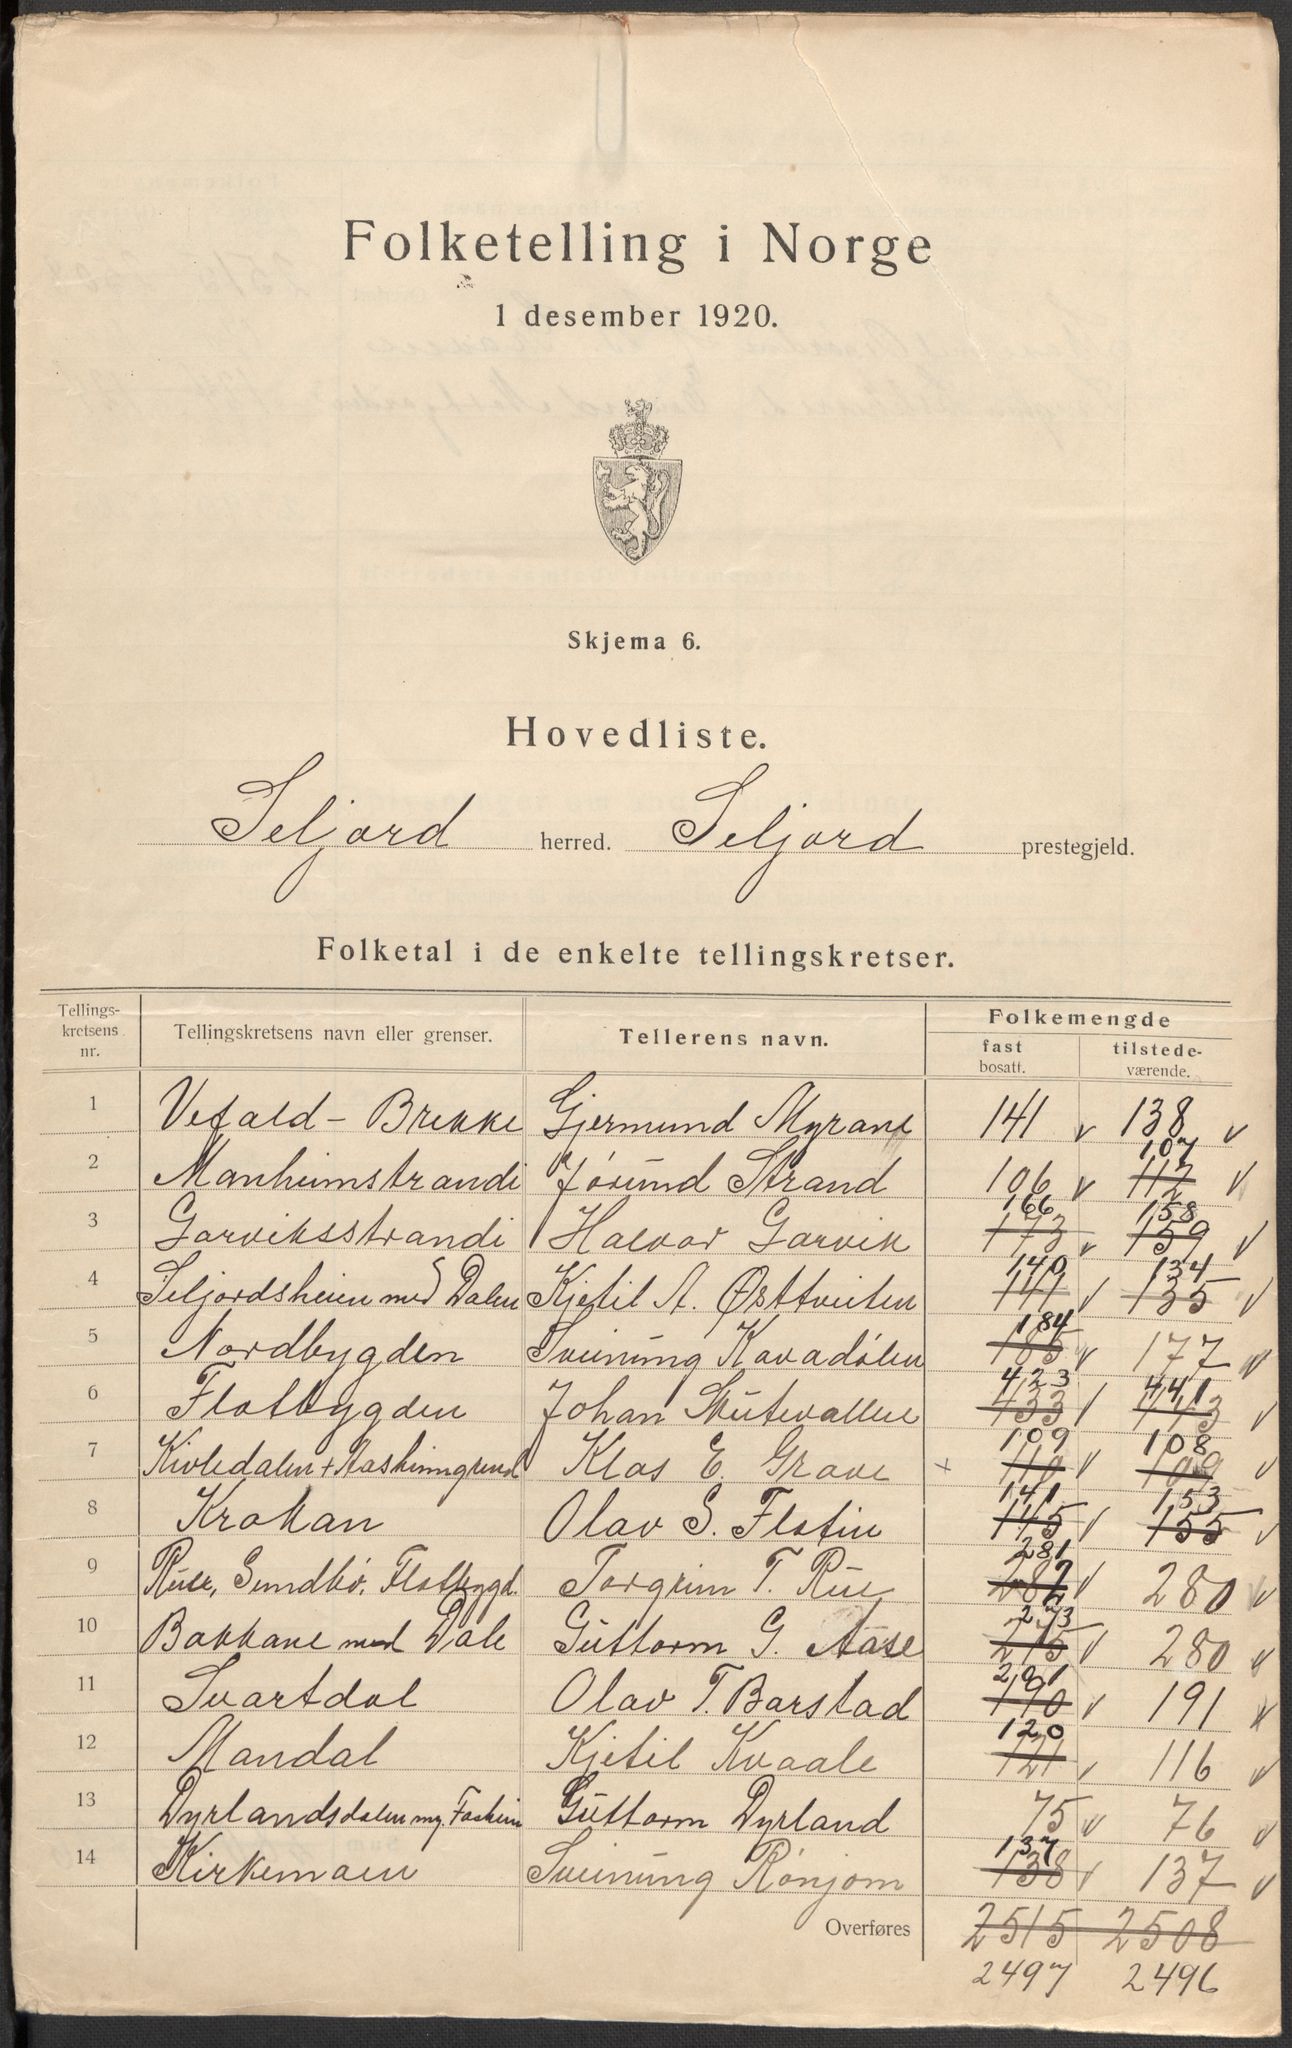 Folketelling i Norge
1 desember 1920.
Skjema 6.
Hovedliste.
Seljord herred. Seljord prestegjeld.
Folketal i de enkelte tellingskretser.
Tellings-kretsens nr. Tellingskretsens navn eller grenser. Tellerens navn. Folkemengde fast bosatt. tilstede-værende.
1 Vefald - Brekke Gjermund Myrane 141 v 138 v
2 Manheimstrandi Jørund Strand 106 v 112 107 v
3 Garviksstrandi Halvor Garvik 173 166 v 159 158 v
4 Seljordsheien med Dalen Kjetil A. Østtveiten 141 140 v 135 134 v
5 Nordbygden Sveinung Kavadølen 185 184 v 177 v
6 Flatbygden Johan 433 423 v 443 441 v
7 Kivledalen + Aasheimgrend Klas E. Grave + 110 109 v 109 108 v
8 Krokan Olav S. Flatin 145 141 v 155 153 v
9 Rue, Sundbø, Flatbygd. Torgrim T. Rue 282 281 v 280 v
10 Bakkane med Dale Guttorm G. Aase 275 273 v 280 v
11 Svartdal Olav T. Barstad 190 191 v 191 v
12 Mandal Kjetil Kvaale 121 120 v 116 v
13 Dyrlandsdalen m/ Guttorm Dyrland 75 v 76 v
14 Kirkemoen Sveinung Rønjom 138 137 v 137 v
Overføres 2515 2508
2497 2496